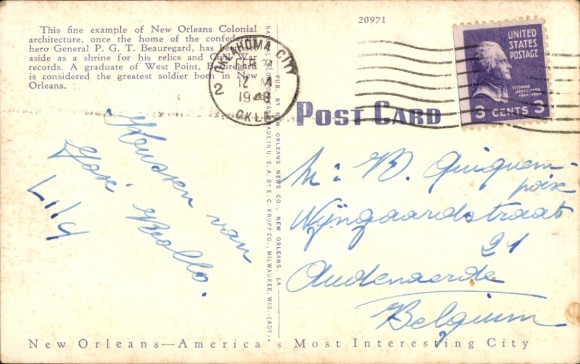 This fine example of New Orleans Colonial
architecture, once the home of the confederate
hero General P. G. T. Beauregard, has been set
aside as a shrine for his relics and Civil War
records. A graduate of West Point, Beauregard
is considered the greatest soldier born in New
Orleans.
20971
OKLAHOMA CITY
2
12 M
1948
OKLA.
UNITED
STATES
POSTAGE
THOMAS
JEFFERSON
3 CENTS 3
POST CARD
PUB. BY NEW ORLEANS NEWS CO., NEW ORLEANS, LA.
MADE IN U. S. A. BY E. C. KROPP CO., MILWAUKEE, WIS.
Kussen van
José Biollo.
Lily
Mr. B. Quiquem-
poix
Wijngaardstraat
21
Audenaerde
Belgium
New Orleans—America's Most Interesting City